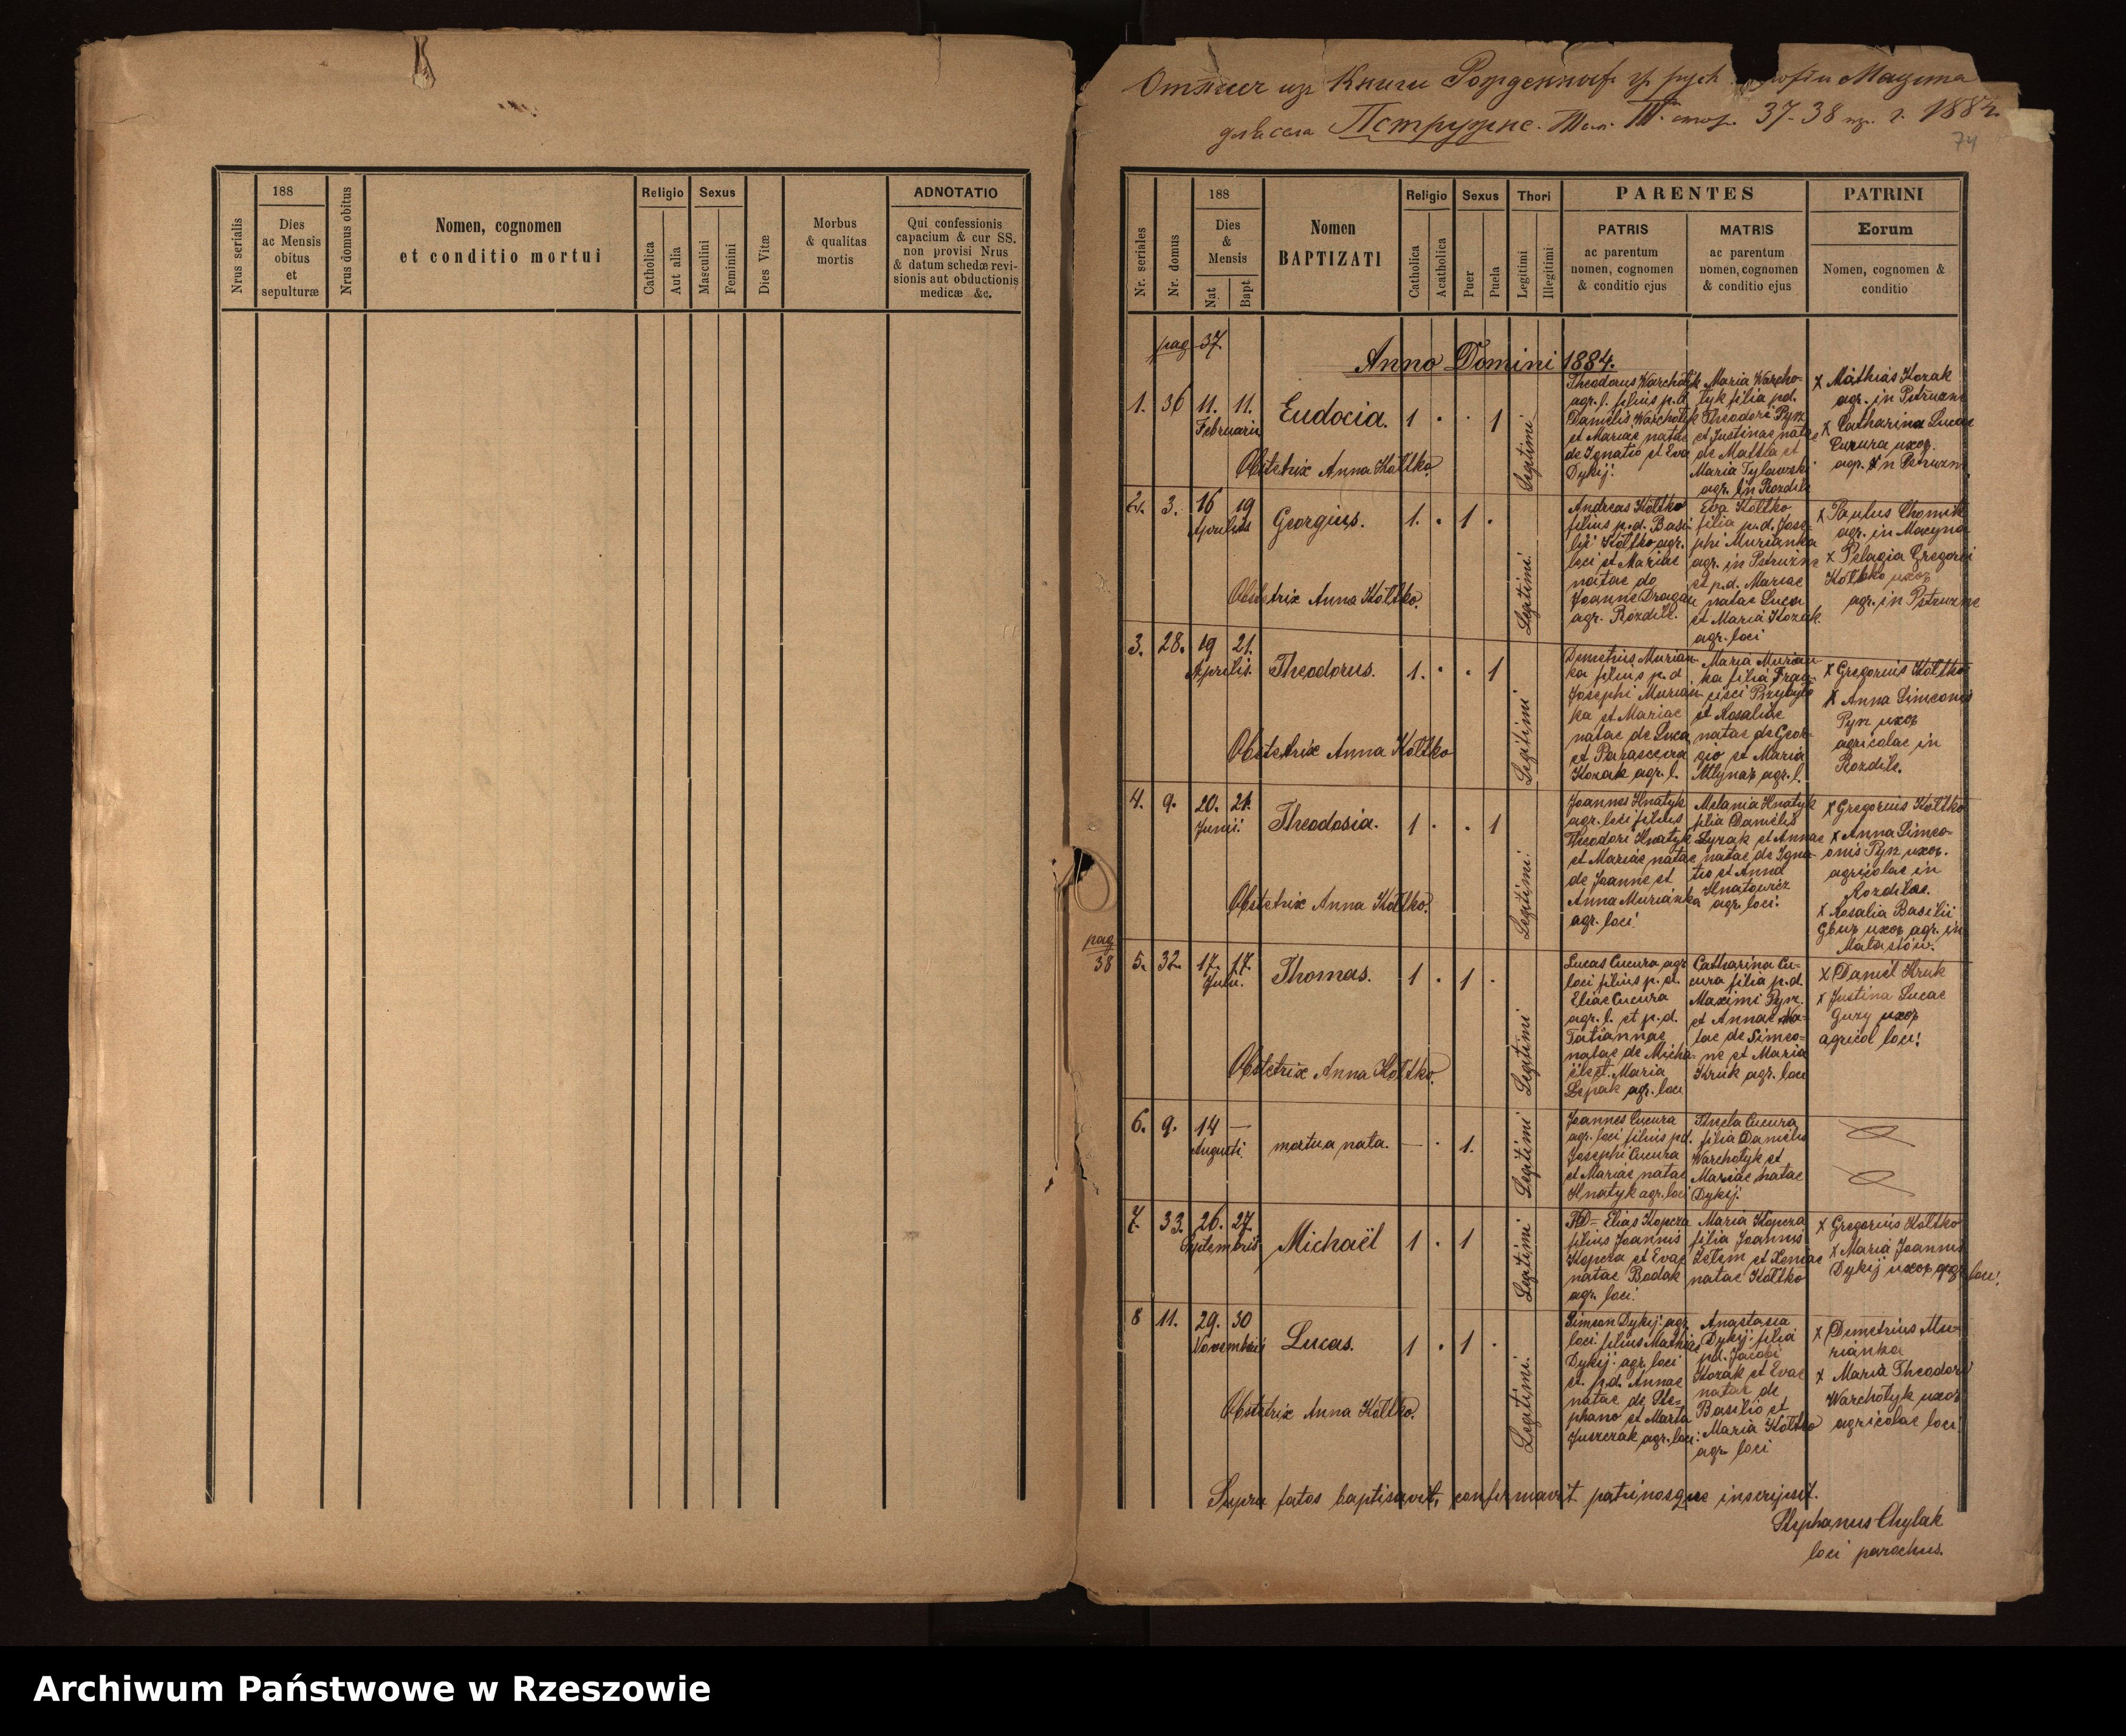 188
Religio
Sexus
ADNOTATIO
Nrus serialis
Dies
ac Mensis
obitus
et
sepulturæ
Nrus domus obitus
Nomen, cognomen
et conditio mortui
Catholica
Aut alia
Masculini
Feminini
Dies Vitæ
Morbus
& qualitas
mortis
Qui confessionis
capacium & cur SS.
non provisi Nrus
& datum schedæ revi-
sionis aut obductionis
medicæ &c.
из Книги
Пстружне. III. 37-38 1884.
74
Nr. seriales
Nr. domus
188
Dies
&
Mensis
Nat
Bapt
Nomen
BAPTIZATI
Religio
Catholica
Acatholica
Sexus
Puer
Puela
Thori
Legitimi
Illegitimi
PARENTES
PATRIS
ac parentum
nomen, cognomen
& conditio ejus
MATRIS
ac parentum
nomen, cognomen
& conditio ejus
PATRINI
Eorum
Nomen, cognomen &
conditio
pag 37.
Anno Domini 1884.
1. 36 11. 11. Eudocia. 1 . . 1 Legitimi
Februarii
Obstetrix Anna Kołtko
Theodorus Warchołyk
agr. l. filius p.d.
Danielis Warchołyk
et Mariae natae
de Ignatio et Eva
Dykij.
Maria Warcho-
łyk filia p.d.
Theodori Pyrz
et Justinae natae
de Mattia et
Maria Tylawski
agr. in Rozdile
x Mathias Kozak
agr. in Pstruzne
x Catharina Lucae
Cucura uxor
agr. in Pstruzne
2. 3. 16 19 Georgius. 1. . 1 . Legitimi.
Aprilis
Obstetrix Anna Kołtko.
Andreas Kołtko
filius p.d. Basi-
lii Kołtko agr.
loci et Mariae
natae de
Joanne Dragan
agr. Rozdile.
Eva Kołtko
filia p.d. Jose-
phi Murianka
agr. in Pstruzne
et p.d. Mariae
natae Luca
et Maria Kozak
agr. loci
x Paulus Chomik
agr. in Macyna
x Pelagia Gregorii
Kołtko uxor
agr. in Pstruzne
3. 28. 19 21. Theodorus. 1. . . 1 Legitimi
Aprilis.
Obstetrix Anna Kołtko
Demetrius Murian-
ka filius p.d.
Josephi Murian-
ka et Mariae
natae de Luca
et Parasceva
Kozak agr. l.
Maria Murian-
ka filia Fran-
cisci Przybyło
et Rosaliae
natae de Geor-
gio et Maria
Młynar agr. l.
x Gregorius Kołtko
x Anna Simeonis
Pyrz uxor
agricolae in
Rozdile.
4. 9. 20. 21. Theodosia. 1 . . 1 Legitimi.
Junii.
Obstetrix Anna Kołtko.
Joannes Hnatyk
agr. loci filius
Theodori Hnatyk
et Mariae natae
de Joanne et
Anna Murianka
agr. loci.
Melania Hnatyk
filia Danielis
et Annae
natae de Igna-
tio et Anna
Hnatowicz
agr. loci.
x Gregorius Kołtko
x Anna Simeo-
nis Pyrz uxor.
agricolae in
Rozdilae.
x Rosalia Basilii
uxor agr. in
Małastów.
pag
38
5. 32. 17. 17. Thomas. 1 . 1 . Legitimi
Julii.
Obstetrix Anna Kołtko.
Lucas Cucura agr
loci filius p.d.
Eliae Cucura
agr. l. et p.d.
Tatiannae
natae de Micha-
ële et Maria
Lepak agr. loci
Catharina Cu-
cura filia p.d.
Maximi Pyrz
et Annae na-
tae de Simeo-
ne et Maria
Kruk agr. loci
x Daniel Kruk
x Justina Lucae
Guzy uxor
agricol loci.
6. 9. 14 — mortua nata. — . 1. Legitimi
Augusti.
Joannes Cucura
agr. loci filius p.d.
Josephi Cucura
et Mariae natae
Hnatyk agr. loci
Thecla Cucura
filia Danielis
Warchołyk et
Mariae natae
Dykij.
7. 33. 26. 27. Michaël 1 . 1 Legitimi
Septembris
Elias Kopcza
filius Joannis
Kopcza et Evae
natae Bodak
agr. loci.
Maria Kopcza
filia Joannis
et Xeniae
natae Kołtko
x Gregorius Kołtko
x Maria Joannis
Dykij uxor agr. loci.
8 11. 29. 30 Lucas. 1 . 1 . Legitimi.
Novembris
Obstetrix Anna Kołtko.
Simeon Dykij agr.
loci filius Mathiae
Dykij agr. loci
et p.d. Annae
natae de Ste-
phano et Marta
Juszczak agr. loci.
Anastasia
Dykij filia
pd. Jacobi
Kozak et Evae
natae de
Basilio et
Maria Kołtko
agr. loci
x Demetrius Mu-
rianka
x Maria Theodori
Warchołyk uxor
agricolae loci
Supra fatos baptisavit, confirmavit patrinosque inscripsit.
Stephanus Chylak
loci parochus.
Archiwum Państwowe w Rzeszowie